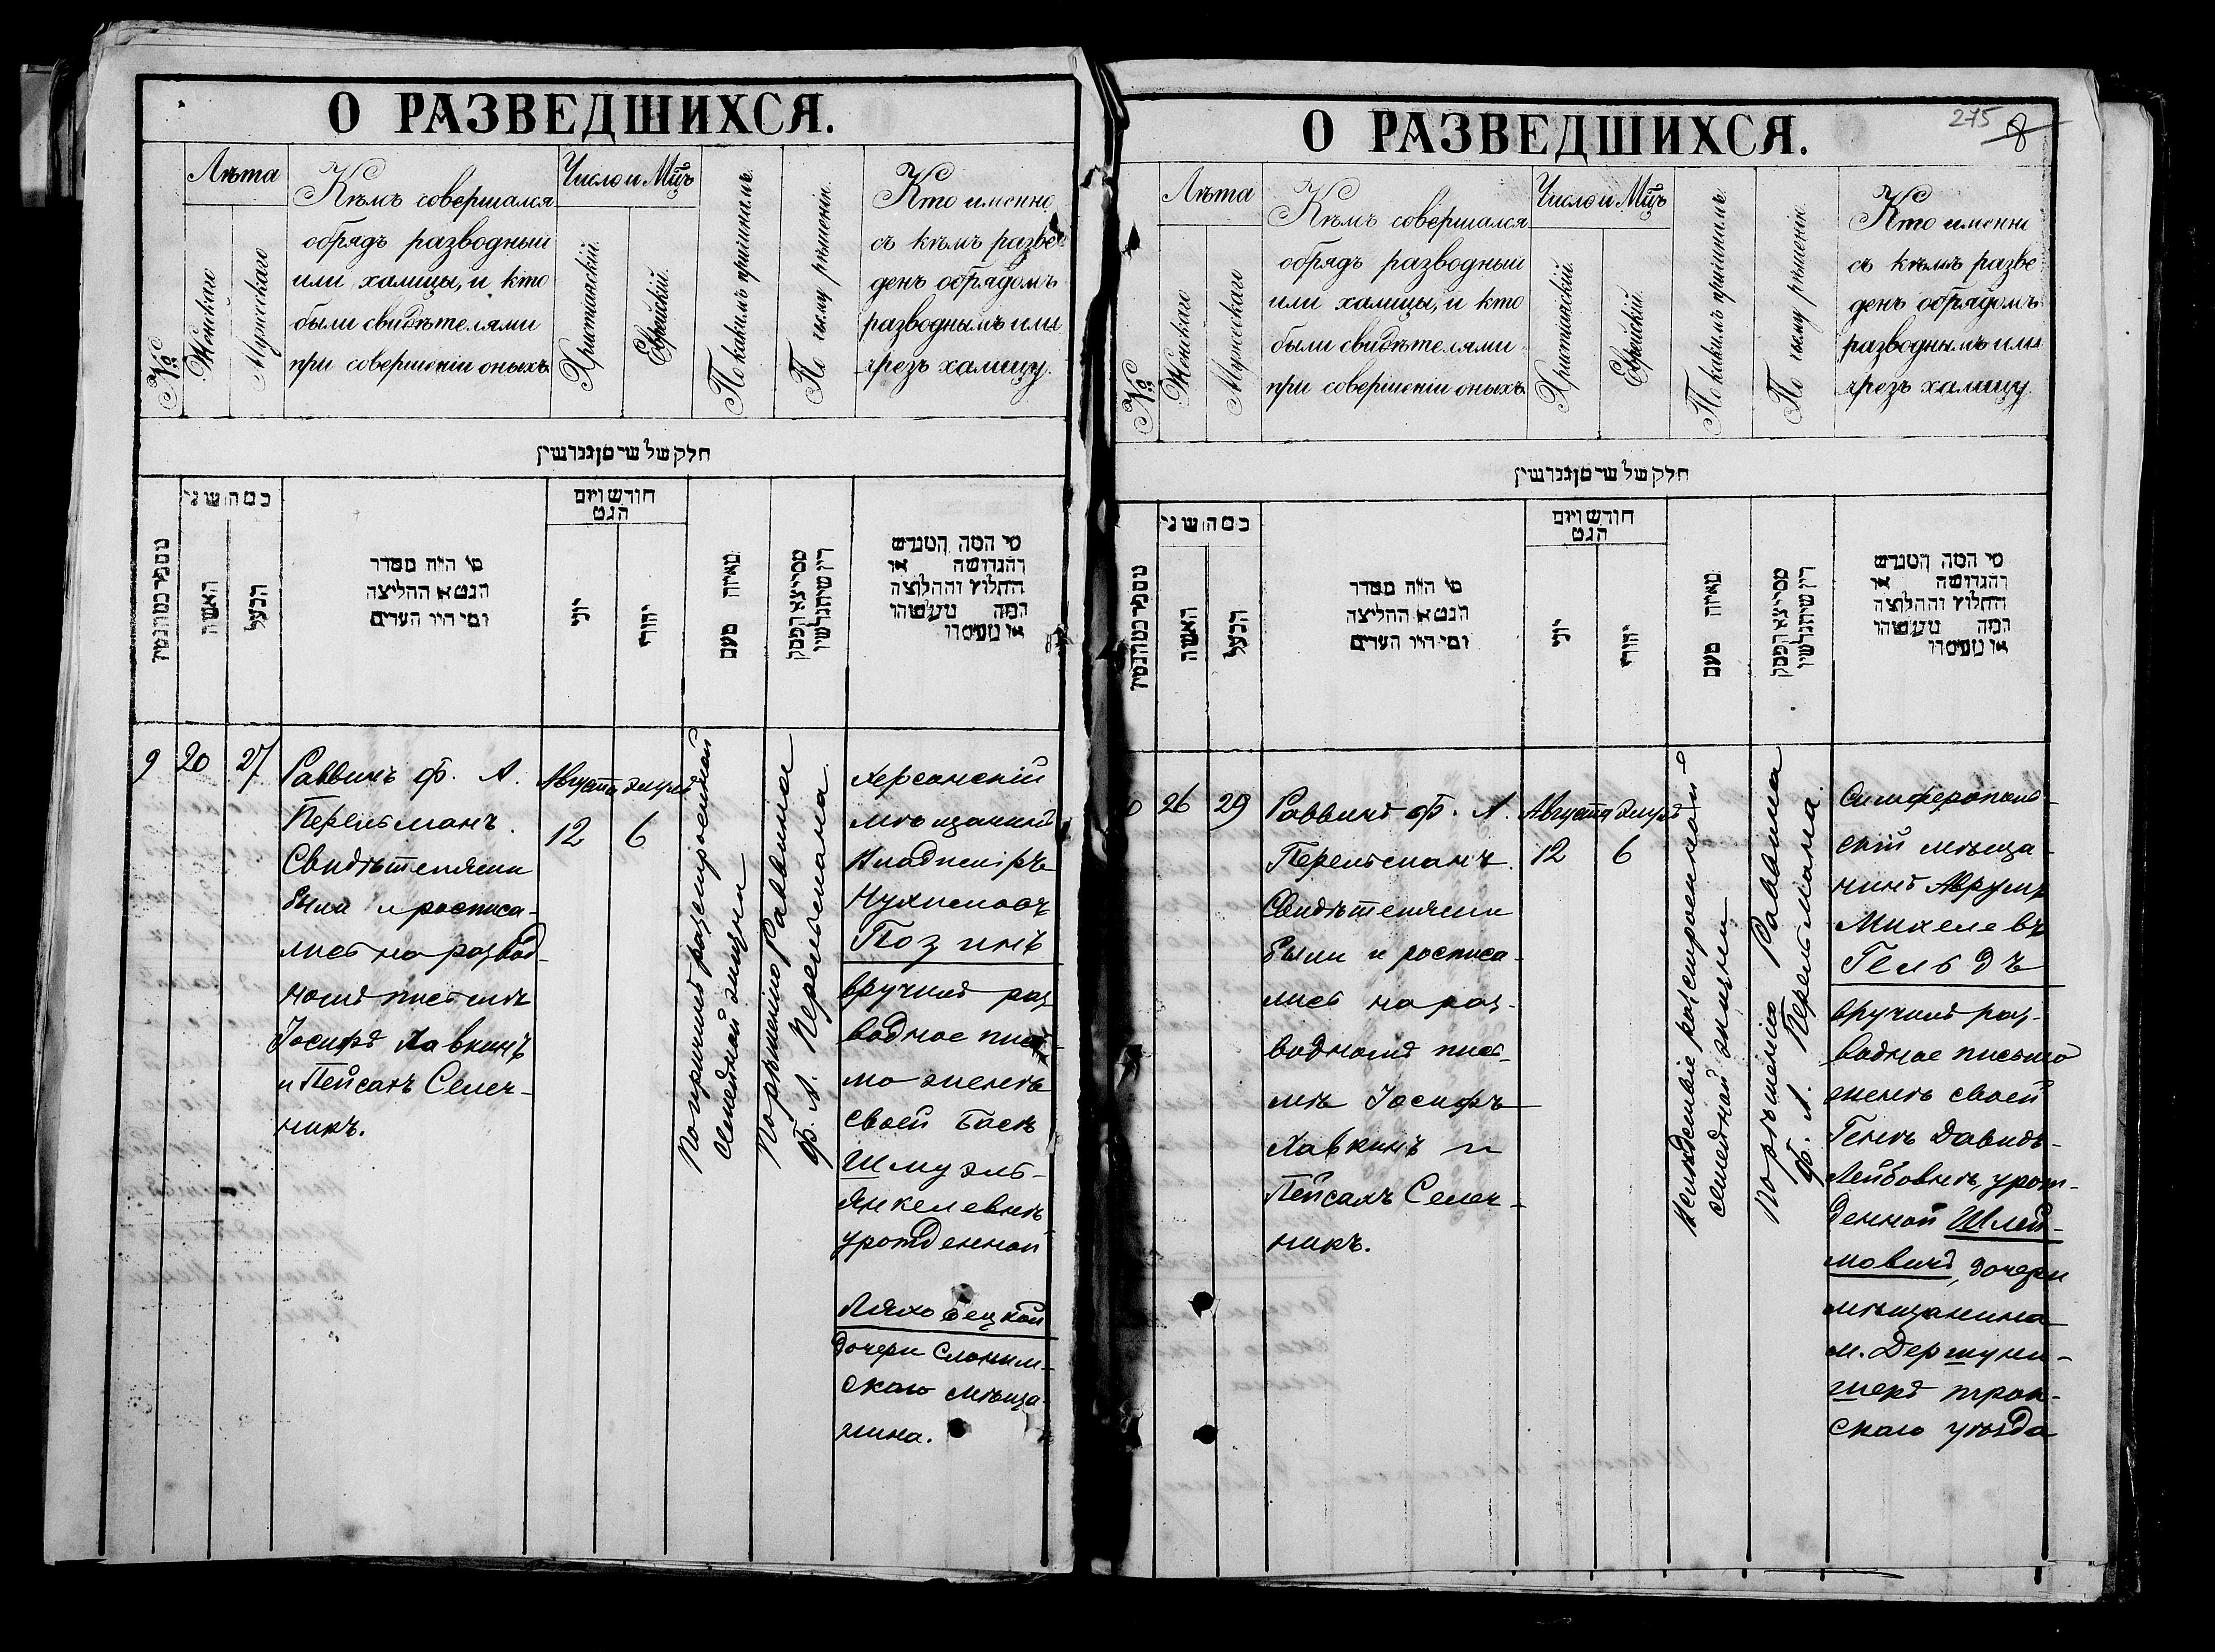 О РАЗВЕДШИХСЯ.
№
Лѣта
Женскаго
Мужескаго
Кѣмъ совершался
обрядъ разводный
или халицы, и кто
были свидѣтелями
при совершеніи оныхъ.
Число и Мцъ
Христіанскій.
Еврейскій.
По какимъ причинамъ.
По чьему рѣшенію.
Кто именно
съ кѣмъ разве
денъ обрядомъ
разводнымъ или
чрезъ халицу.
האשה
הבעל
מי היה מסדר
הגט או החליצה
ומי היו העדים
חודש ויום
הגט
יוני
יהודי
9
20
27
Раввинъ Ф. А.
Перельманъ.
Свидѣтелями
были и росписа-
лись на развод-
номъ письмѣ
Іосифъ Хавкинъ
и Пейсахъ Селеч-
никъ.
Августа
12
Элулъ
6
По причинѣ разстроенной
семейной жизни
По рѣшенію Раввина
Ф. А. Перельмана.
Херсонскій
мѣщанинъ
Владиміръ
Нухимовъ
Позинъ
вручилъ раз-
водное пись-
мо женѣ
своей Басѣ
Шмуэль-
Янкелевнѣ
урожденной
Ляховецкой
дочери Слоним-
скаго мѣща-
нина.
О РАЗВЕДШИХСЯ.
275
8
№
Лѣта
Женскаго
Мужескаго
Кѣмъ совершался
обрядъ разводный
или халицы, и кто
были свидѣтелями
при совершеніи оныхъ.
Число и Мцъ
Христіанскій.
Еврейскій.
По какимъ причинамъ.
По чьему рѣшенію.
Кто именно
съ кѣмъ разве
денъ обрядомъ
разводнымъ или
чрезъ халицу.
האשה
הבעל
מי היה מסדר
הגט או החליצה
ומי היו העדים
חודש ויום
הגט
יוני
יהודי
26
29
Раввинъ Ф. А.
Перельманъ.
Свидѣтелями
были и росписа-
лись на раз-
водномъ пись-
мѣ Іосифъ
Хавкинъ и
Пейсахъ Селеч-
никъ.
Августа
12
Элулъ
6
Вслѣдствіе разстроенной
семейной жизни
По рѣшенію Раввина
Ф. А. Перельмана.
Симферополь-
скій мѣща-
нинъ Аврумъ
Михелевъ
Гельдъ
вручилъ раз-
водное письмо
женѣ своей
Генѣ Давидъ-
Лейбовнѣ, урож-
денной Шлей-
мовичъ, дочери
мѣщанина
м. Держуни-
шекъ Трок-
скаго уѣзда